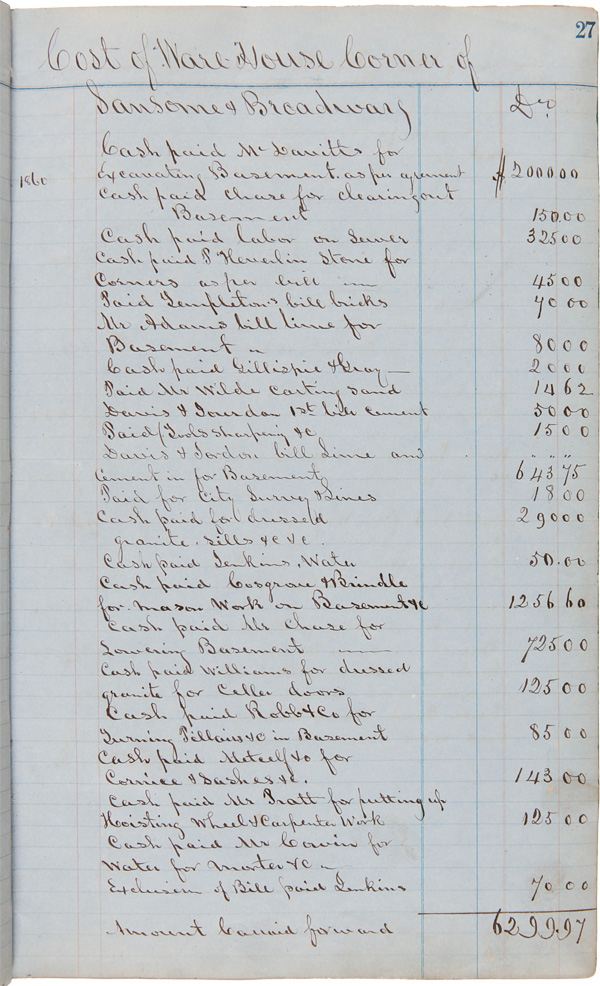 27
Cost of Ware House Corner of
Sansome & Broadway Dr.
Cash paid Mc Davitts for
1860 Excavating Basement as per agrement $200000
Cash paid Chase for clearing out
Basement 15000
Cash paid labor on Sewer 32500
Cash paid P Heverlin Stone for
Corners as per bill 4500
Paid Templetons bill bricks 7000
Mr Adams bill lime for
Basement " 8000
Cash paid Gillispie & Gray — 2000
Paid Mr Wilde Carting sand 1462
Davis & Jourdan 1st bill cement 5000
Paid Tools sharping &c 1500
Davis & Jordon bill Lime and " " " "
Cement in for Basement 64375
Paid for City Survey & Lines 1800
Cash paid for dressed 29000
granite sills &c &c.
Cash paid Jenkins, Water 50.00
Cash paid Cosgrove & Brindle
for Mason Work on Basement &c 125660
Cash paid Mr Chase for
Lowering Basement —— 72500
Cash paid Williams for dressed
granite for Celler doors 12500
Cash paid Robb & Co for
Turning Pillairs &c in Basement 8500
Cash paid for
Cornice & Sashes &c. 14300
Cash paid Mr Pratt for putting up
Hoisting Wheel & Carpenter Work 12500
Cash paid Mr Cowin for
Water for Morter &c "
Exclusion of Bill paid Jenkins 7000
Amount Carraid forward 6299.97